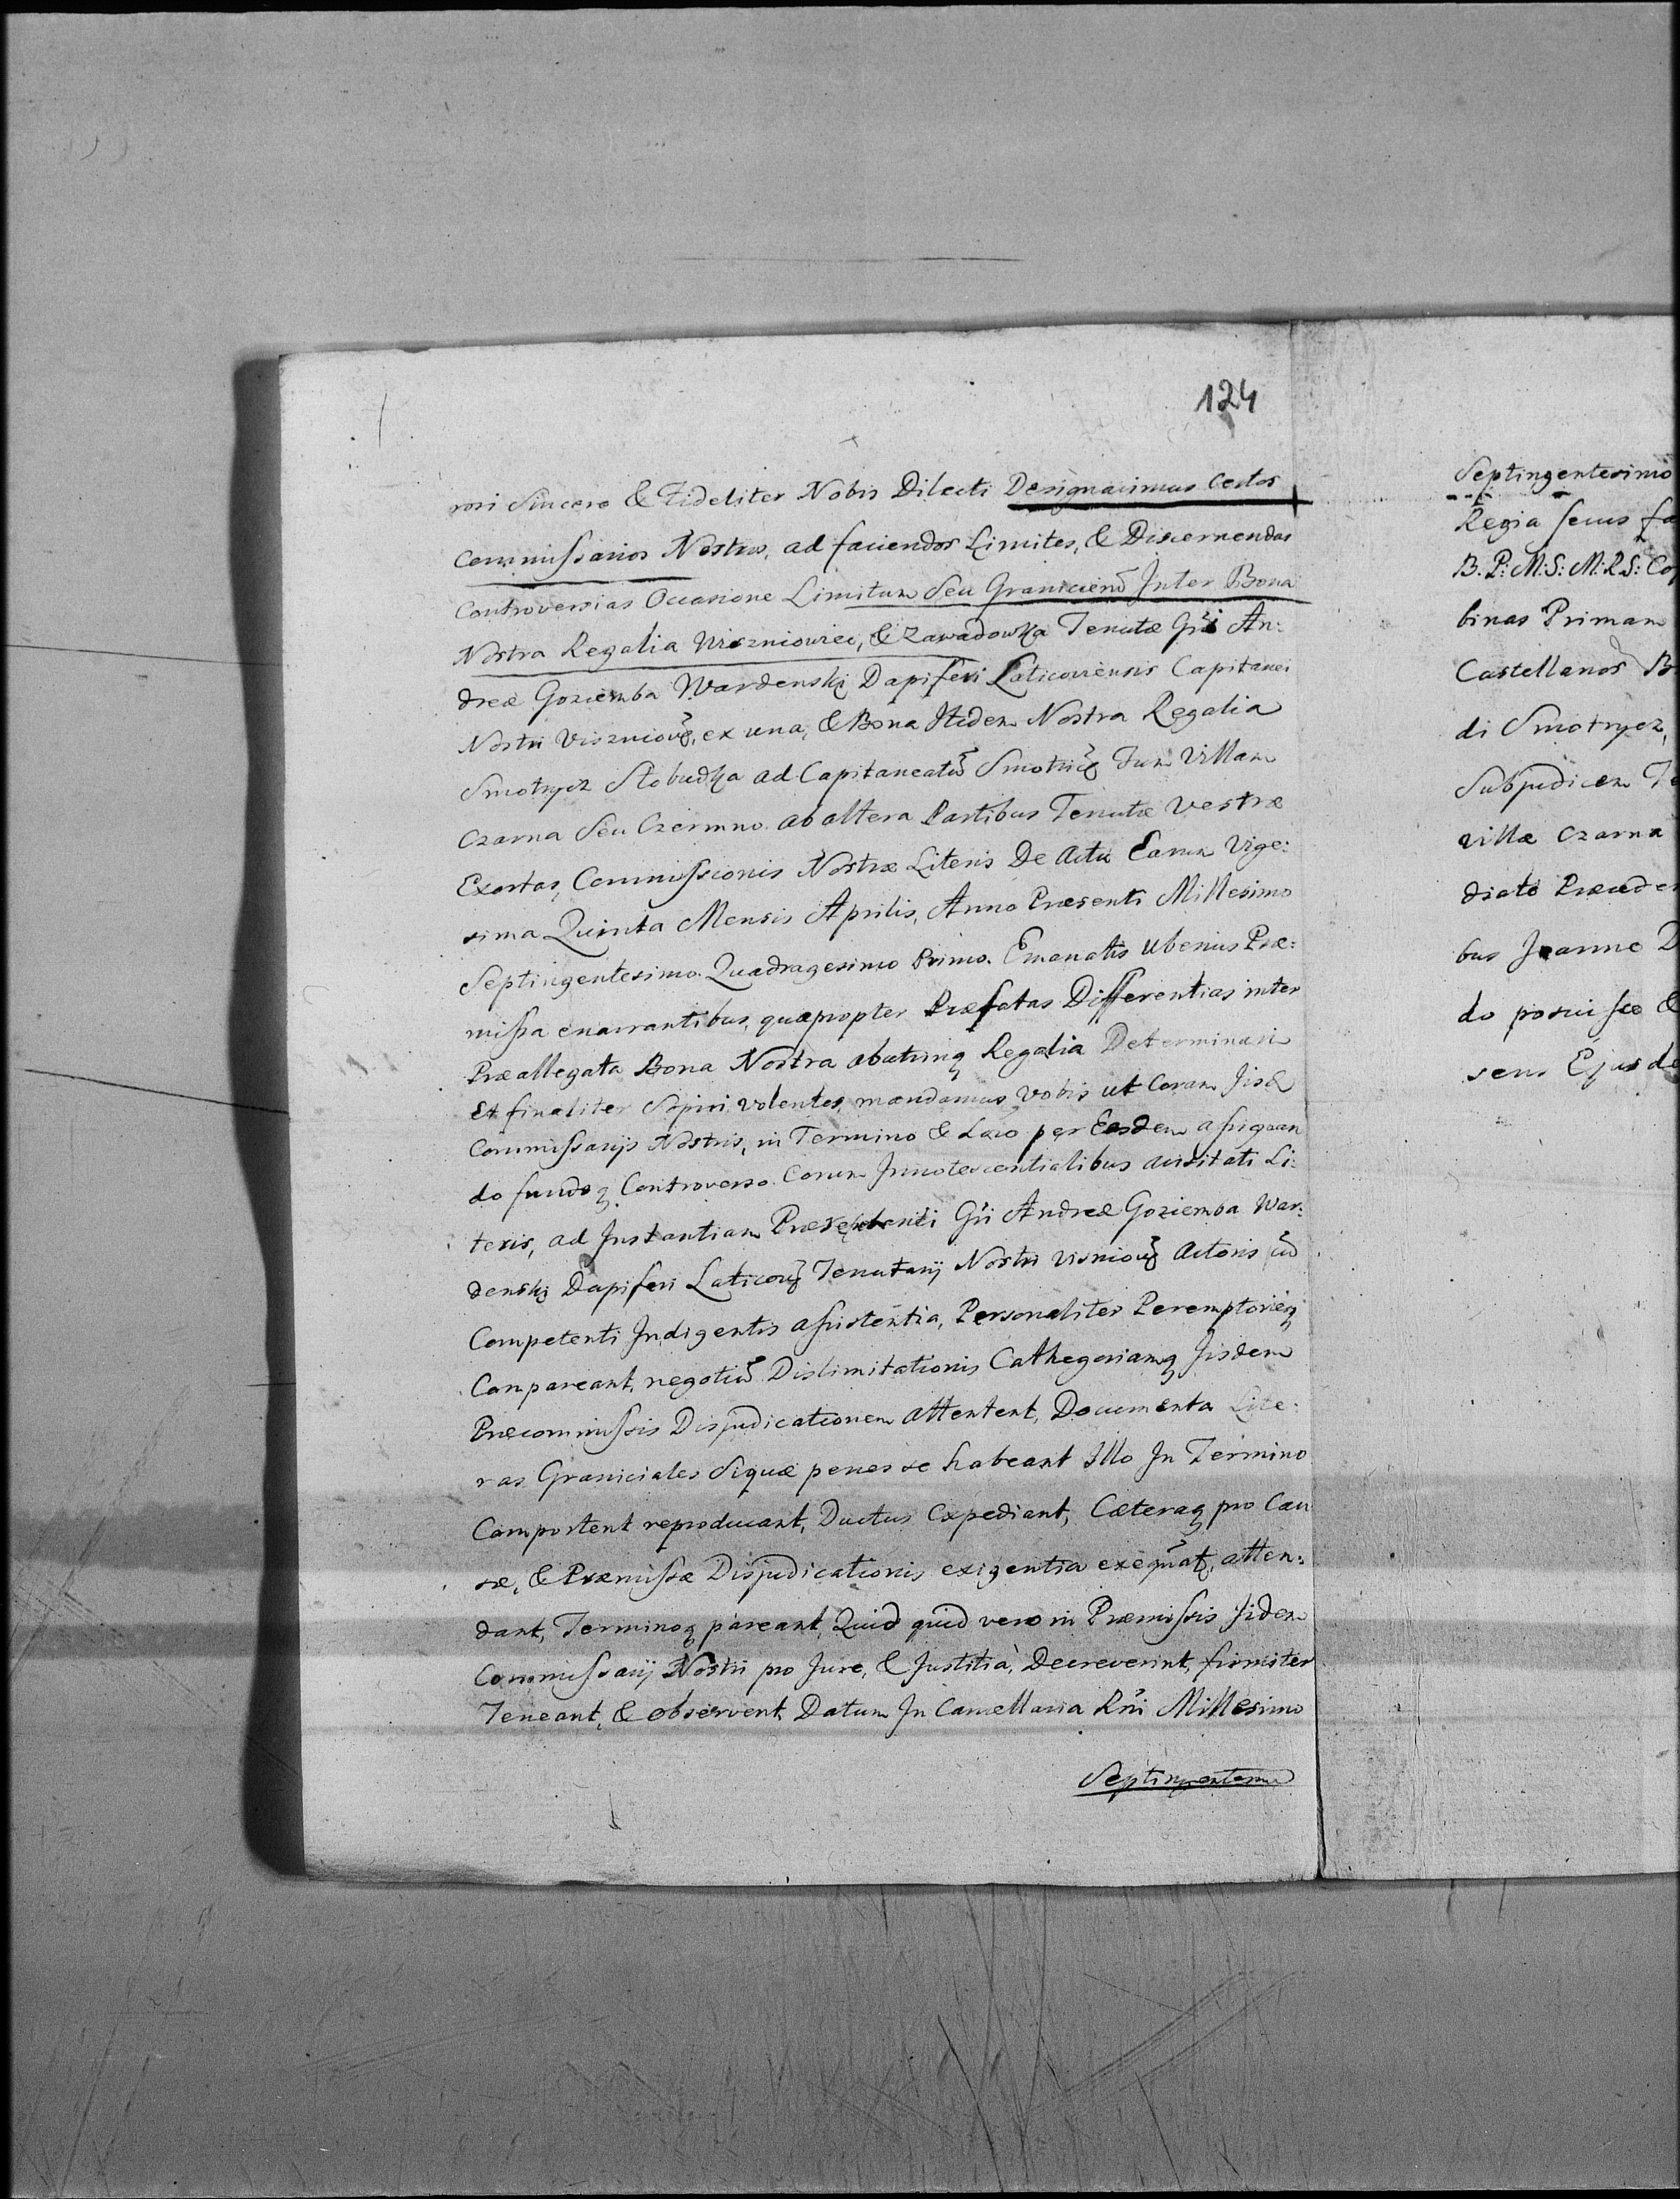 124
rosi Sincere & Fideliter Nobis Dilecti Designavimus Certos
Commissarios Nostros, ad faciendos Limites, & Discernendas
Controversias Occasione Limitum Seu Granicierũ Inter Bona
Nostra Regalia Wiszniowiec, & Zawadowka Tenutæ Gñi An:
dreæ Goziemba Wardenski Dapiferi Laticoviensis Capitanei
Nostri Viszniov, ex una, & Bona Itidem Nostra Regalia
Smotrycz Slobudka ad Capitaneatũ Smotric Tum Villam
Czarna Seu Czermno ab altera Partibus Tenutæ Vestræ
Exortas, Commissionis Nostræ Literis De Actu Earum Vige:
sima Quinta Mensis Aprilis, Anno Præsenti Millesimo
Septingentesimo Quadragesimo Primo. Emanatis Uberius Præ:
missa enarrantibus, quapropter Præfatas Differentias inter
Præallegata Bona Nostra abutrinq Regalia Determinari
Et finaliter Sopiri volentes, mandamus Vobis ut Coram Iisd
Commissarijs Nostris, in Termino & Loco per Eosdem assignan
do fundoq Controverso Eorum Innotescentialibus avisitati Li:
teris, ad Instantiam Gñi Andreæ Goziemba War:
denski Dapiferi Laticov Tenutarij Nostri Visniov Actoris cũ
Competenti Indigentis assistentia, Personaliter Peremptorieq
Compareant, negotiũ Dislimitationis Cathegoriamq Iisdem
Præcommissis Disjudicationem attentent, Documenta Lite:
ras Graniciales Siquæ penes se habeant Illo In Termino
Comportent reproducant, Ductus Expediant, Cæteraq pro Cau
sæ, & Præmissæ Disjudicationis exigentia exequãt, atten:
dant, Terminoq pareant, Quid quid vero in Præmissis Iidem
Commissarij Nostri pro Jure, & Justitia, Decreverint, firmiter
Teneant, & observent. Datum In Cancellaria Rñi Millesimo
Septingentesimo
Regia secus
B. P: M: S: M: R S:
binas Primam
Castellanos
di Smotrycz,
Subjudicem
villæ Czarna
diato
bus Joanne
do posuisse &
sens